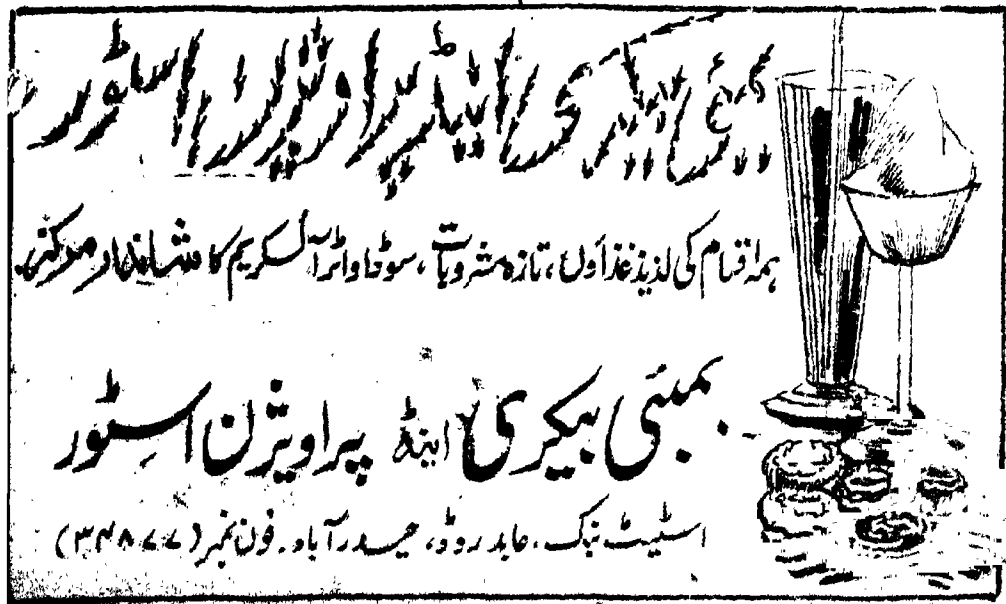 بمبئی بیکری اینڈ پراویژن اسٹور
ہمہ اقسام کی لذیذ غذاؤں، تازہ مشروبات، سوڈا واٹر آئسکریم کا شاندار مرکز۔
بمبئی بیکری اینڈ پراویژن اسٹور
اسٹیٹ بنک، عابد روڈ، حیدرآباد۔ فون نمبر (۳۴۸۷۷)